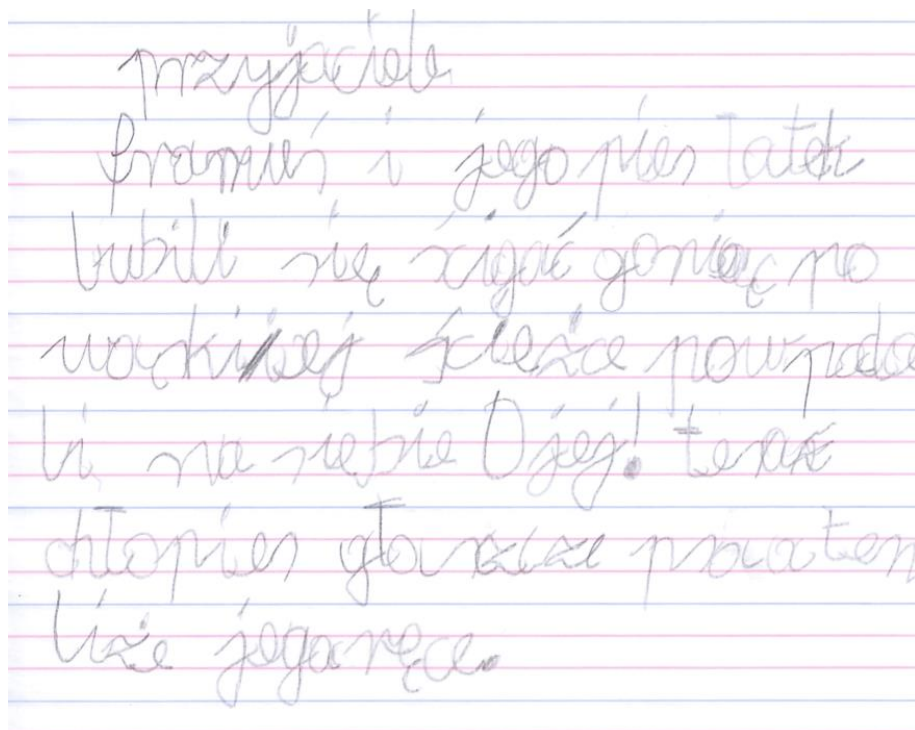 przyjaciele
Franuś i jego pies Łatek
lubili się ścigać goniąc po
wąskiej ścieżce powpada
li na siebie Ojej! teraz
chłopiec głaszcze psa a ten
liże jego ręce.